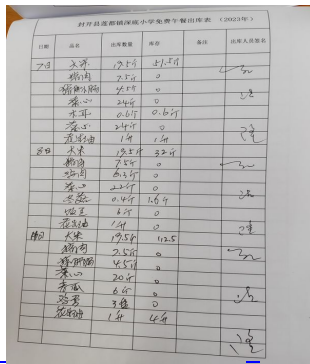 封开县莲都镇深底小学免费午餐出库表（2023年）
日期 品名 出库数量 库存 备注 出库人员签名
7日 大米 19.5斤 51.5斤
猪肉 7.5斤 0
4.5斤 0
菜心 24斤 0
木耳 0.6斤 0.6斤
菜心 24斤 0
花生油 1斤 1斤
8日 大米 19.5斤 32斤
猪肉 7.5斤 0
6.3斤 0
菜心 22斤 0
0.4斤 1.6斤
6斤 0
花生油 1斤 0
大米 19.5斤 12.5
猪肉 7.5斤 0
4.5斤 0
菜心 20斤 0
6斤 0
鸡蛋 3盘 0
花生油 1斤 4斤